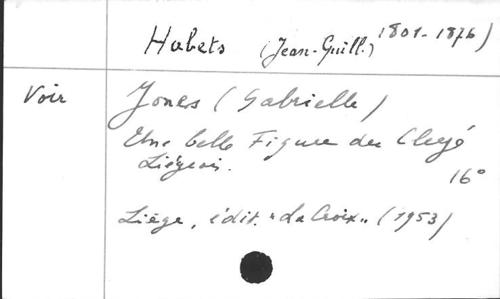 Habets (Jean-Guill.) 1801-1876)
Voir
Joners (Gabrielle)
Une belle Figure du Clergé
Liégeois.
16°
Liège, édit. "La Croix" (1953)